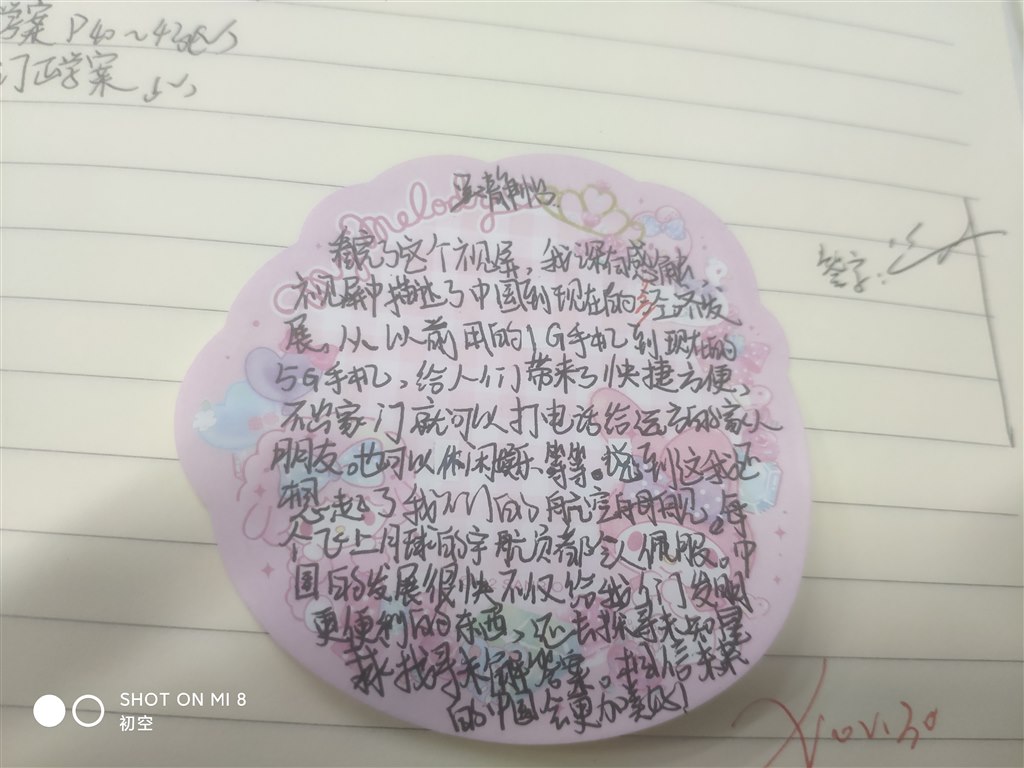 学案 P40~42
学案
melody
看完了这个视屏，我深有感触，
视屏中描述了中国到现在的经济发
展。从以前用的1G手机到现在的
5G手机，给人们带来了快捷方便，
不出家门就可以打电话给远方的家人
朋友。也可以休闲娱乐等等。想到这我还
想起了我们的航空母舰。每
个飞上月球的宇航员都令人佩服。中
国的发展很快不仅给我们发明
更便利的东西，还去探寻未知星
球找寻未解答案。相信未来
的中国会更加美好!
签字:
Nov.30
SHOT ON MI 8
初空